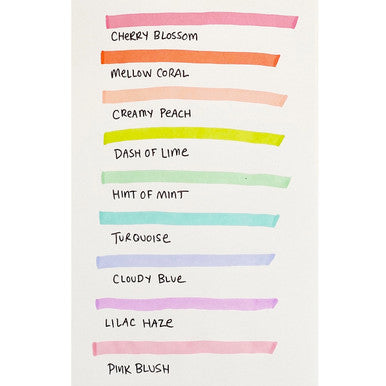 CHERRY BLOSSOM
MELLOW CORAL
CREAMY PEACH
DASH OF LIME
HINT OF MINT
TURQUOISE
CLOUDY BLUE
LILAC HAZE
PINK BLUSH